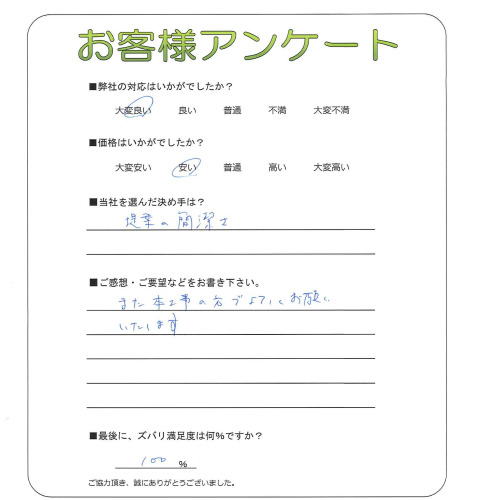 お客様アンケート
■弊社の対応はいかがでしたか？
大変良い 良い 普通 不満 大変不満
■価格はいかがでしたか？
大変安い 安い 普通 高い 大変高い
■当社を選んだ決め手は？
提案の簡潔さ
■ご感想・ご要望などをお書き下さい。
また本工事の方でよろしくお願い
いたします
■最後に、ズバリ満足度は何％ですか？
100 ％
ご協力頂き、誠にありがとうございました。